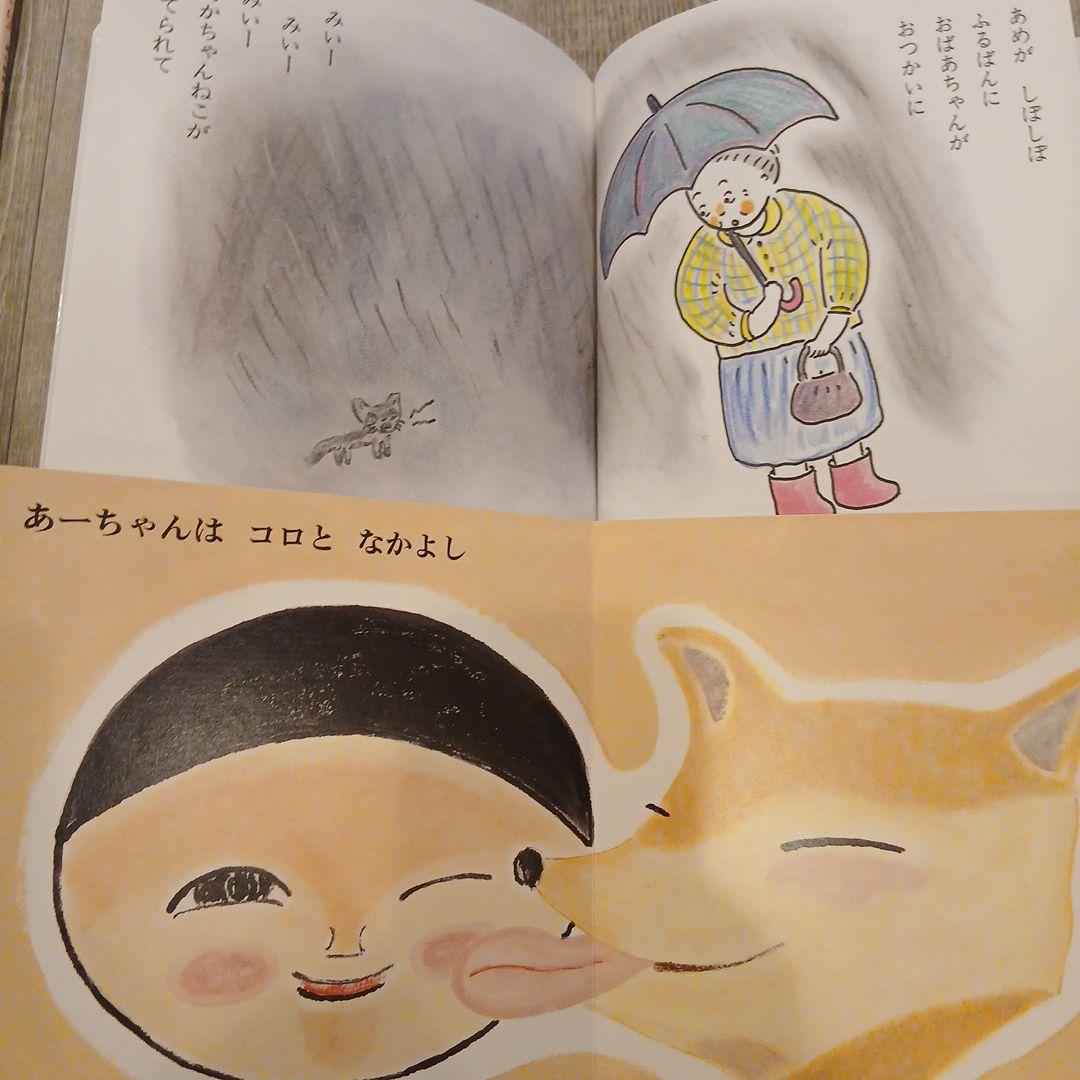 あめが しぼしぼ
ふるばんに
おばあちゃんが
おつかいに
みいー
みいー
みいー
かちゃんねこが
てられて
あーちゃんは コロと なかよし